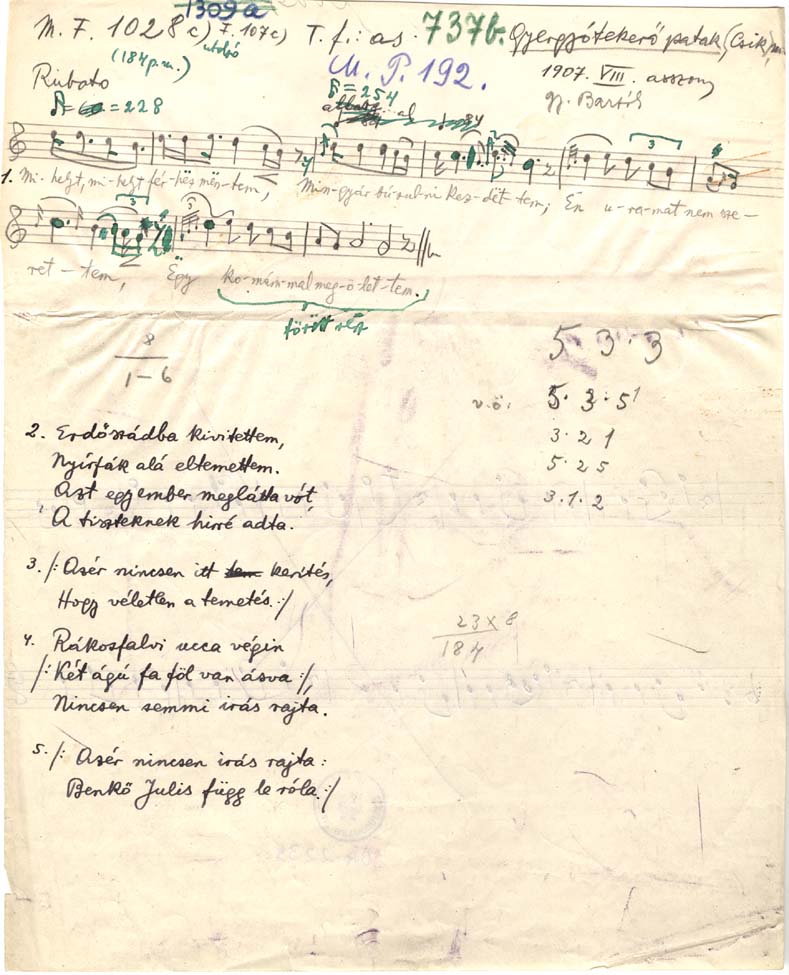 1309a
M. F. 1028 c) F. 107c) T. f.: as. 737b. Gyergyótekerőpatak, (Csik)
utolsó
(184 p.m.) M. P. 192. 1907. VIII. asszony
Rubato gy. Bartók
= 228 = 254
3
1. Mi-helyt, mi-helyt fér-hës mën-tem, Min-gyár bú-sul-ni kez-dët-tem; Én u-ra-mat nem sze-
3 3
ret-tem, Ëgy ko-mám-mal meg-ö-let-tem.
8
1-6
5 3 3
v.ö. 5. 3. 5 1
3. 2 1
5. 2 5
3. 1. 2
2. Erdőszádba kivitettem,
Nyírfák alá eltemettem.
Aszt egy ember meglátta vót,
A tiszteknek hirré adta.
3. /: Asér nincsen itt kerítés,
Hogy véletlen a temetés. :/
23 x 8
184
4. Rákosfalvi ucca végin
/: Két ágú fa föl van ásva :/,
Nincsen semmi irás rajta.
5. /: Asér nincsen irás rajta:
Benkő Julis függ le róla. :/